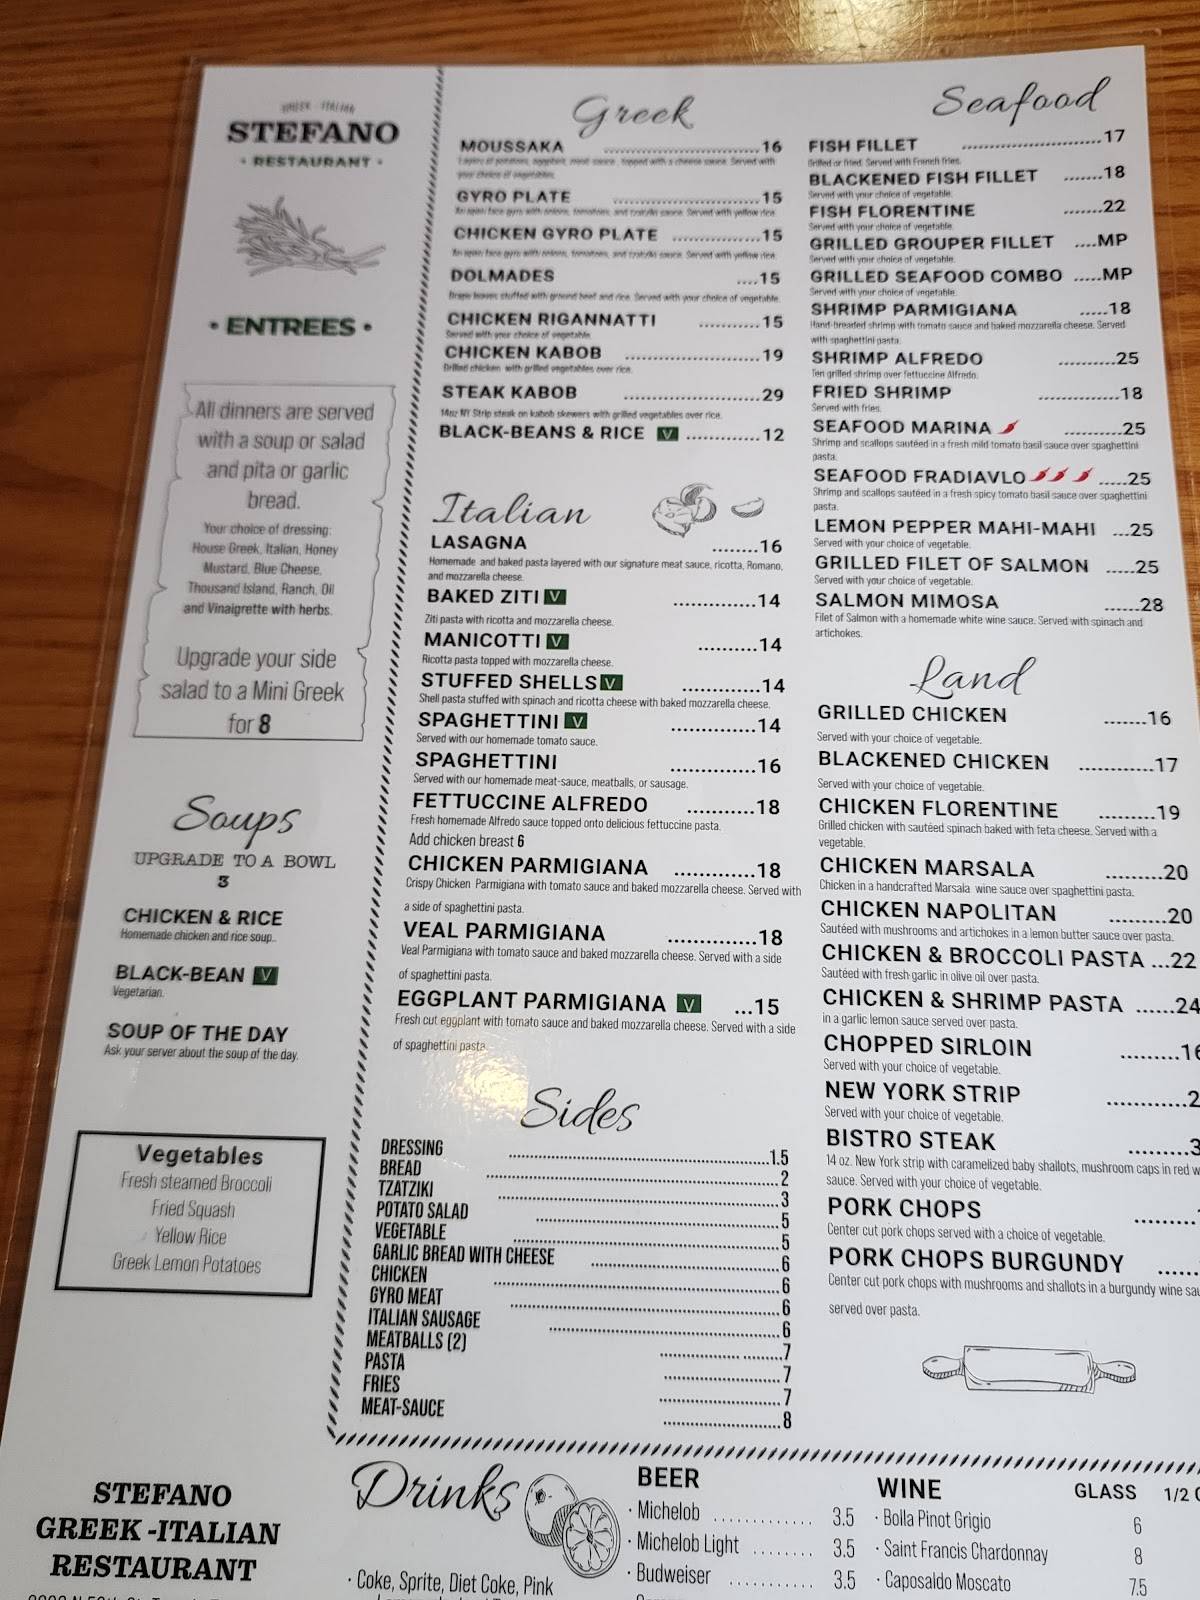 GREEK - ITALIAN
STEFANO
• RESTAURANT •
• ENTREES •
All dinners are served
with a soup or salad
and pita or garlic
bread.
Your choice of dressing:
House Greek, Italian, Honey
Mustard, Blue Cheese,
Thousand Island, Ranch, Oil
and Vinaigrette with herbs.
Upgrade your side
salad to a Mini Greek
for 8
Soups
UPGRADE TO A BOWL
3
CHICKEN & RICE
Homemade chicken and rice soup..
BLACK-BEAN V
Vegetarian.
SOUP OF THE DAY
Ask your server about the soup of the day.
Vegetables
Fresh steamed Broccoli
Fried Squash
Yellow Rice
Greek Lemon Potatoes
STEFANO
GREEK -ITALIAN
RESTAURANT
Greek
MOUSSAKA ..........16
Layers of potatoes, eggplant, meat sauce, topped with a cheese sauce. Served with
your choice of vegetables.
GYRO PLATE ..........15
An open face gyro with onions, tomatoes, and tzatziki sauce. Served with yellow rice.
CHICKEN GYRO PLATE ..........15
An open face gyro with onions, tomatoes, and tzatziki sauce. Served with yellow rice.
DOLMADES ....15
Grape leaves stuffed with ground beef and rice. Served with your choice of vegetable.
CHICKEN RIGANNATTI ..........15
Served with your choice of vegetable.
CHICKEN KABOB ..........19
Grilled chicken with grilled vegetables over rice.
STEAK KABOB ..........29
14oz NY Strip steak on kabob skewers with grilled vegetables over rice.
BLACK-BEANS & RICE V ..........12
Italian
LASAGNA ........16
Homemade and baked pasta layered with our signature meat sauce, ricotta, Romano,
and mozzarella cheese.
BAKED ZITI V ..........14
Ziti pasta with ricotta and mozzarella cheese.
MANICOTTI V ..........14
Ricotta pasta topped with mozzarella cheese.
STUFFED SHELLS V ..........14
Shell pasta stuffed with spinach and ricotta cheese with baked mozzarella cheese.
SPAGHETTINI V ..........14
Served with our homemade tomato sauce.
SPAGHETTINI ..........16
Served with our homemade meat-sauce, meatballs, or sausage.
FETTUCCINE ALFREDO ..........18
Fresh homemade Alfredo sauce topped onto delicious fettuccine pasta.
Add chicken breast 6
CHICKEN PARMIGIANA ..........18
Crispy Chicken Parmigiana with tomato sauce and baked mozzarella cheese. Served with
a side of spaghettini pasta.
VEAL PARMIGIANA ..........18
Veal Parmigiana with tomato sauce and baked mozzarella cheese. Served with a side
of spaghettini pasta.
EGGPLANT PARMIGIANA V ...15
Fresh cut eggplant with tomato sauce and baked mozzarella cheese. Served with a side
of spaghettini pasta.
Sides
DRESSING ..........1.5
BREAD ..........2
TZATZIKI ..........3
POTATO SALAD ..........5
VEGETABLE ..........5
GARLIC BREAD WITH CHEESE ..........6
CHICKEN ..........6
GYRO MEAT ..........6
ITALIAN SAUSAGE ..........6
MEATBALLS (2) ..........7
PASTA ..........7
FRIES ..........7
MEAT-SAUCE ..........8
Seafood
FISH FILLET ..........17
Grilled or fried. Served with French fries.
BLACKENED FISH FILLET .......18
Served with your choice of vegetable.
FISH FLORENTINE .......22
Served with your choice of vegetable.
GRILLED GROUPER FILLET ....MP
Served with your choice of vegetable.
GRILLED SEAFOOD COMBO .....MP
Served with your choice of vegetable.
SHRIMP PARMIGIANA .....18
Hand-breaded shrimp with tomato sauce and baked mozzarella cheese. Served
with spaghettini pasta.
SHRIMP ALFREDO ..........25
Ten grilled shrimp over fettuccine Alfredo.
FRIED SHRIMP ..........18
Served with fries.
SEAFOOD MARINA ..........25
Shrimp and scallops sautéed in a fresh mild tomato basil sauce over spaghettini
pasta.
SEAFOOD FRADIAVLO .....25
Shrimp and scallops sautéed in a fresh spicy tomato basil sauce over spaghettini
pasta.
LEMON PEPPER MAHI-MAHI ...25
Served with your choice of vegetable.
GRILLED FILET OF SALMON .....25
Served with your choice of vegetable.
SALMON MIMOSA ......28
Filet of Salmon with a homemade white wine sauce. Served with spinach and
artichokes.
Land
GRILLED CHICKEN .......16
Served with your choice of vegetable.
BLACKENED CHICKEN ..........17
Served with your choice of vegetable.
CHICKEN FLORENTINE .........19
Grilled chicken with sautéed spinach baked with feta cheese. Served with a
vegetable.
CHICKEN MARSALA .........20
Chicken in a handcrafted Marsala wine sauce over spaghettini pasta.
CHICKEN NAPOLITAN .........20
Sautéed with mushrooms and artichokes in a lemon butter sauce over pasta.
CHICKEN & BROCCOLI PASTA ...22
Sautéed with fresh garlic in olive oil over pasta.
CHICKEN & SHRIMP PASTA ......24
in a garlic lemon sauce served over pasta.
CHOPPED SIRLOIN .........16
Served with your choice of vegetable.
NEW YORK STRIP ............2
Served with your choice of vegetable.
BISTRO STEAK .........3
14 oz. New York strip with caramelized baby shallots, mushroom caps in red w
sauce. Served with your choice of vegetable.
PORK CHOPS .........
Center cut pork chops served with a choice of vegetable.
PORK CHOPS BURGUNDY ......
Center cut pork chops with mushrooms and shallots in a burgundy wine sau
served over pasta.
Drinks
· Coke, Sprite, Diet Coke, Pink
BEER
· Michelob ............. 3.5
· Michelob Light ........ 3.5
· Budweiser ........... 3.5
WINE GLASS 1/2
· Bolla Pinot Grigio 6
· Saint Francis Chardonnay 8
· Caposaldo Moscato 7.5